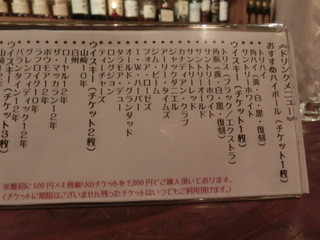 《ドリンクメニュー》
おすすめハイボール(チケット1枚)
サントリーホワイト
角瓶(黄・白・黒・復刻)
ウイスキー(チケット1枚)
トリス(ブラック/エクストラ)
サントリーレッド
サントリーホワイト
角瓶(黄・白・黒・復刻)
サントリーオールド
ジャック・ダニエル
ジョージィ・クラブ
アーリータイムズ
I・W・ハーパー
フォア・ローゼズ
オールド・グランダッド
タラモア・デュー
ロングジョン
ティーチャーズ
ウイスキー(チケット2枚)
山崎10年
白州
ローヤル12年
マッカラン12年
ボウモア12年
ラフロイグ10年
グレンフィディック12年
バランタイン12年
ウイスキー(チケット3枚)
※最初に500円×4枚綴りのチケットを2,000円でご購入頂いております。
(チケットに期限はございません残ったチケットはいつでもご利用頂けます。)